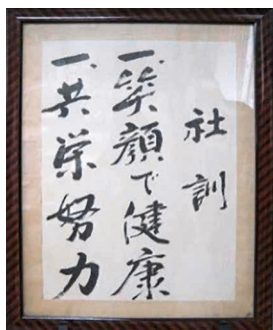 社訓
一、笑顔で健康
一、共栄努力